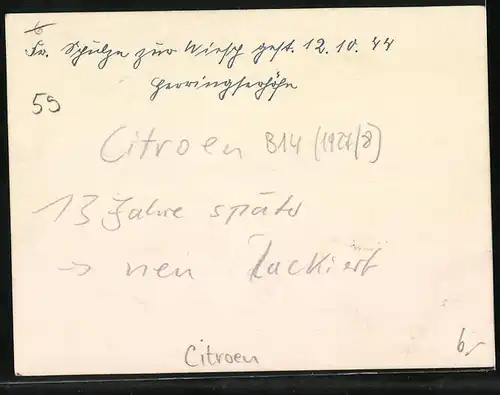 6
Fr. Schulze zur Wiesch gest. 12.10.44
Herringserhöhe
59
Citroen B14 (1927/8)
13 Jahre später
→ neu lackiert
Citroen
6,-